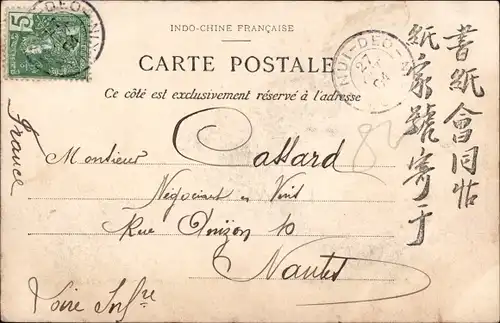 INDO-CHINE FRANÇAISE
CARTE POSTALE
Ce côté est exclusivement réservé à l'adresse
5
NUI-DEO
27
04
France
Monsieur Cassard
Négociant en Vins
Rue 10
Nantes
Loire Infre
書紙會同帖
紙家號寄于